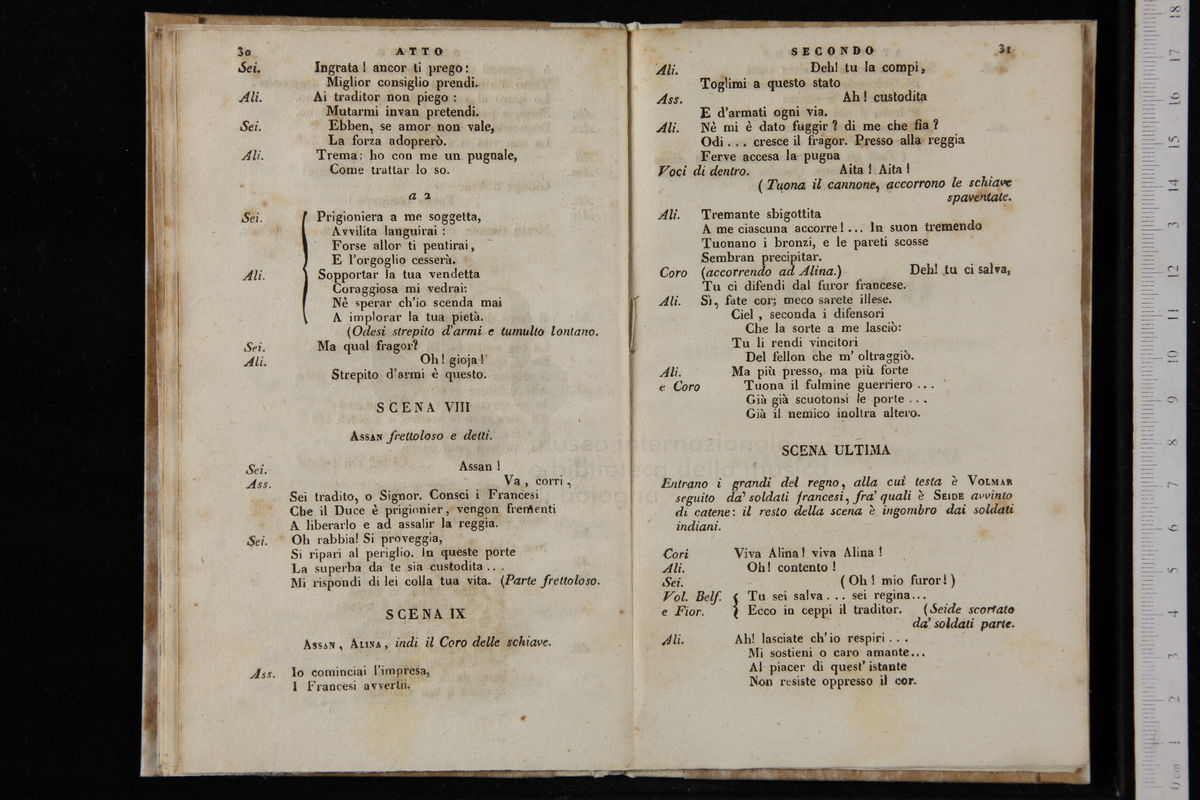 30 ATTO
Sei. Ingrata! ancor ti prego:
Miglior consiglio prendi.
Ali. Ai traditor non piego:
Mutarmi invan pretendi.
Sei. Ebben, se amor non vale,
La forza adoprerò.
Ali. Trema: ho con me un pugnale,
Come trattar lo so.
a 2
Sei. Prigioniera a me soggetta,
Avvilita languirai:
Forse allor ti pentirai,
E l'orgoglio cesserà.
Ali. Sopportar la tua vendetta
Coraggiosa mi vedrai:
Nè sperar ch'io scenda mai
A implorar la tua pietà.
(Odesi strepito d'armi e tumulto lontano.
Sei. Ma qual fragor?
Ali. Oh! gioja!
Strepito d'armi è questo.
SCENA VIII
ASSAN frettoloso e detti.
Sei. Assan!
Ass. Va, corri,
Sei tradito, o Signor. Consci i Francesi
Che il Duce è prigionier, vengon frementi
A liberarlo e ad assalir la reggia.
Sei. Oh rabbia! Si proveggia,
Si ripari al periglio. In queste porte
La superba da te sia custodita...
Mi rispondi di lei colla tua vita. (Parte frettoloso.
SCENA IX
ASSAN, ALINA, indi il Coro delle schiave.
Ass. Io cominciai l'impresa,
I Francesi avvertii.
SECONDO 31
Ali. Deh! tu la compi,
Toglimi a questo stato
Ass. Ah! custodita
E d'armati ogni via.
Ali. Nè mi è dato fuggir? di me che fia?
Odi... cresce il fragor. Presso alla reggia
Ferve accesa la pugna
Voci di dentro. Aita! Aita!
(Tuona il cannone, accorrono le schiave
spaventate.
Ali. Tremante sbigottita
A me ciascuna accorre!... In suon tremendo
Tuonano i bronzi, e le pareti scosse
Sembran precipitar.
Coro (accorrendo ad Alina.) Deh! tu ci salva,
Tu ci difendi dal furor francese.
Ali. Sì, fate cor; meco sarete illese.
Ciel, seconda i difensori
Che la sorte a me lasciò:
Tu li rendi vincitori
Del fellon che m' oltraggiò.
Ali. Ma più presso, ma più forte
e Coro Tuona il fulmine guerriero...
Già già scuotonsi le porte...
Già il nemico inoltra altero.
SCENA ULTIMA
Entrano i grandi del regno, alla cui testa è VOLMAR
seguito da' soldati francesi, fra' quali è SEIDE avvinto
di catene: il resto della scena è ingombro dai soldati
indiani.
Cori Viva Alina! viva Alina!
Ali. Oh! contento!
Sei. (Oh! mio furor!)
Vol. Belf. Tu sei salva... sei regina...
e Fior. Ecco in ceppi il traditor. (Seide scortato
da' soldati parte.
Ali. Ah! lasciate ch'io respiri...
Mi sostieni o caro amante...
Al piacer di quest' istante
Non resiste oppresso il cor.
museo internazionale
e biblioteca della musica
di bologna
0 cm 1 2 3 4 5 6 7 8 9 10 11 12 13 14 15 16 17 18